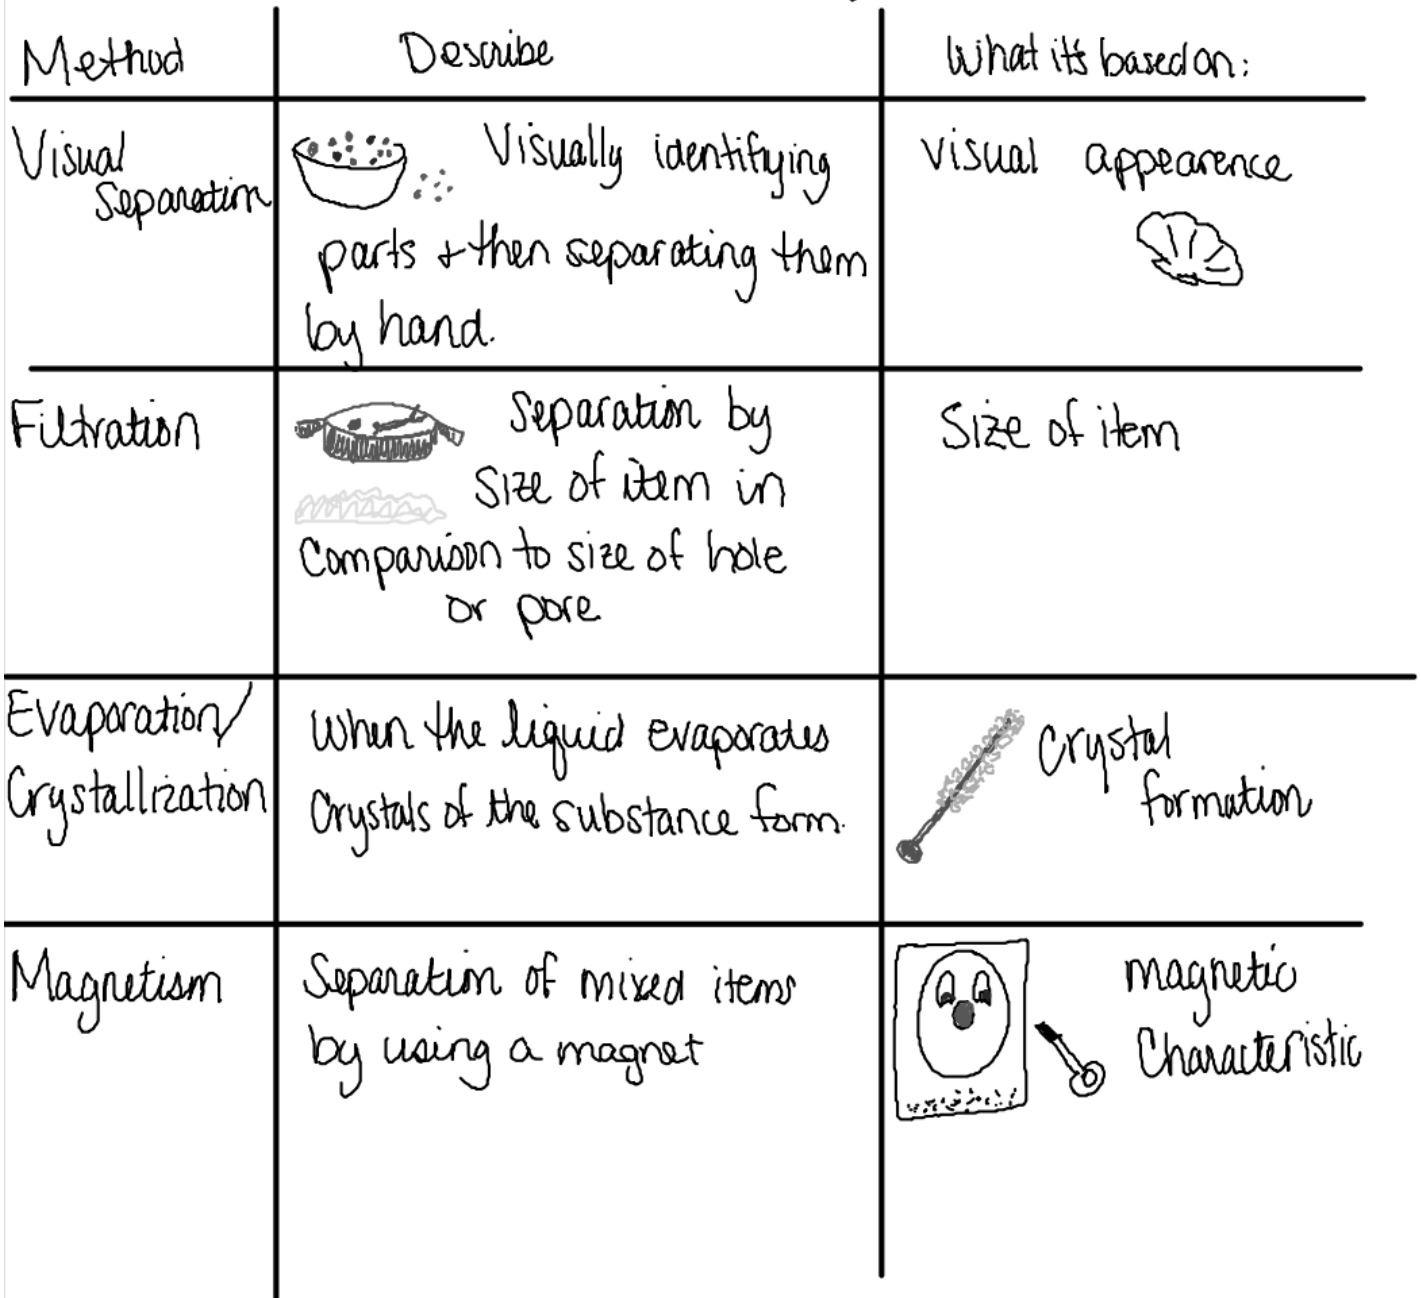 Method
Describe
What it's based on:
Visual
Separation
Visually identifiying
parts + then separating them
by hand.
visual appearence
Filtration
Separation by
Size of item in
Comparison to size of hole
or pore
Size of item
Evaporation/
Crystallization
When the liquid evaporates
Crystals of the substance form.
Crystal
formation
Magnetism
Separation of mixed items
by using a magnet
magnetic
Characteristic